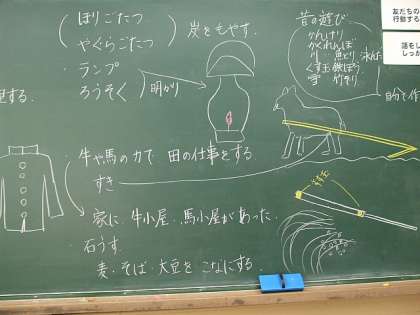 ほりごたつ
やぐらごたつ
炭をもやす.
ランプ
ろうそく
明かり
昔の遊び
かんけり
かくれんぼ
川 魚とり
竹ぞり
友だちの
行動する
話を
しっか
する.
牛や馬の力で 田の仕事をする.
すき
家に. 牛小屋. 馬小屋があった.
石うす.
麦・そば・大豆をこなにする.